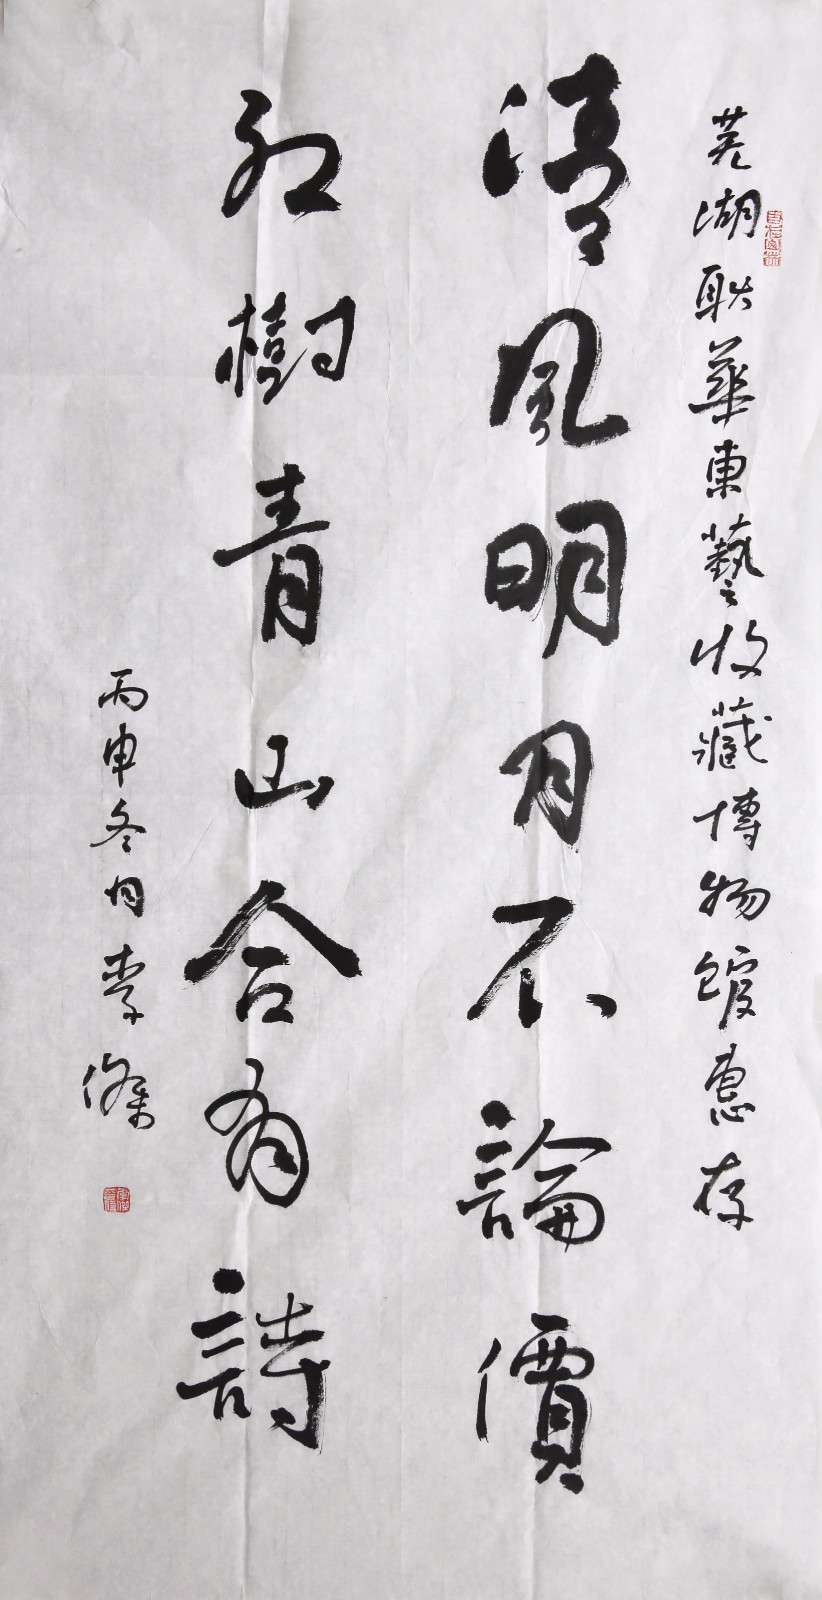 芜湖耿華東藝收藏博物館惠存
清風明月不論價
紅樹青山合有詩
丙申冬月李傑